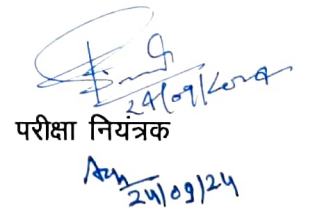 24/09/2024
परीक्षा नियंत्रक
24/09/24